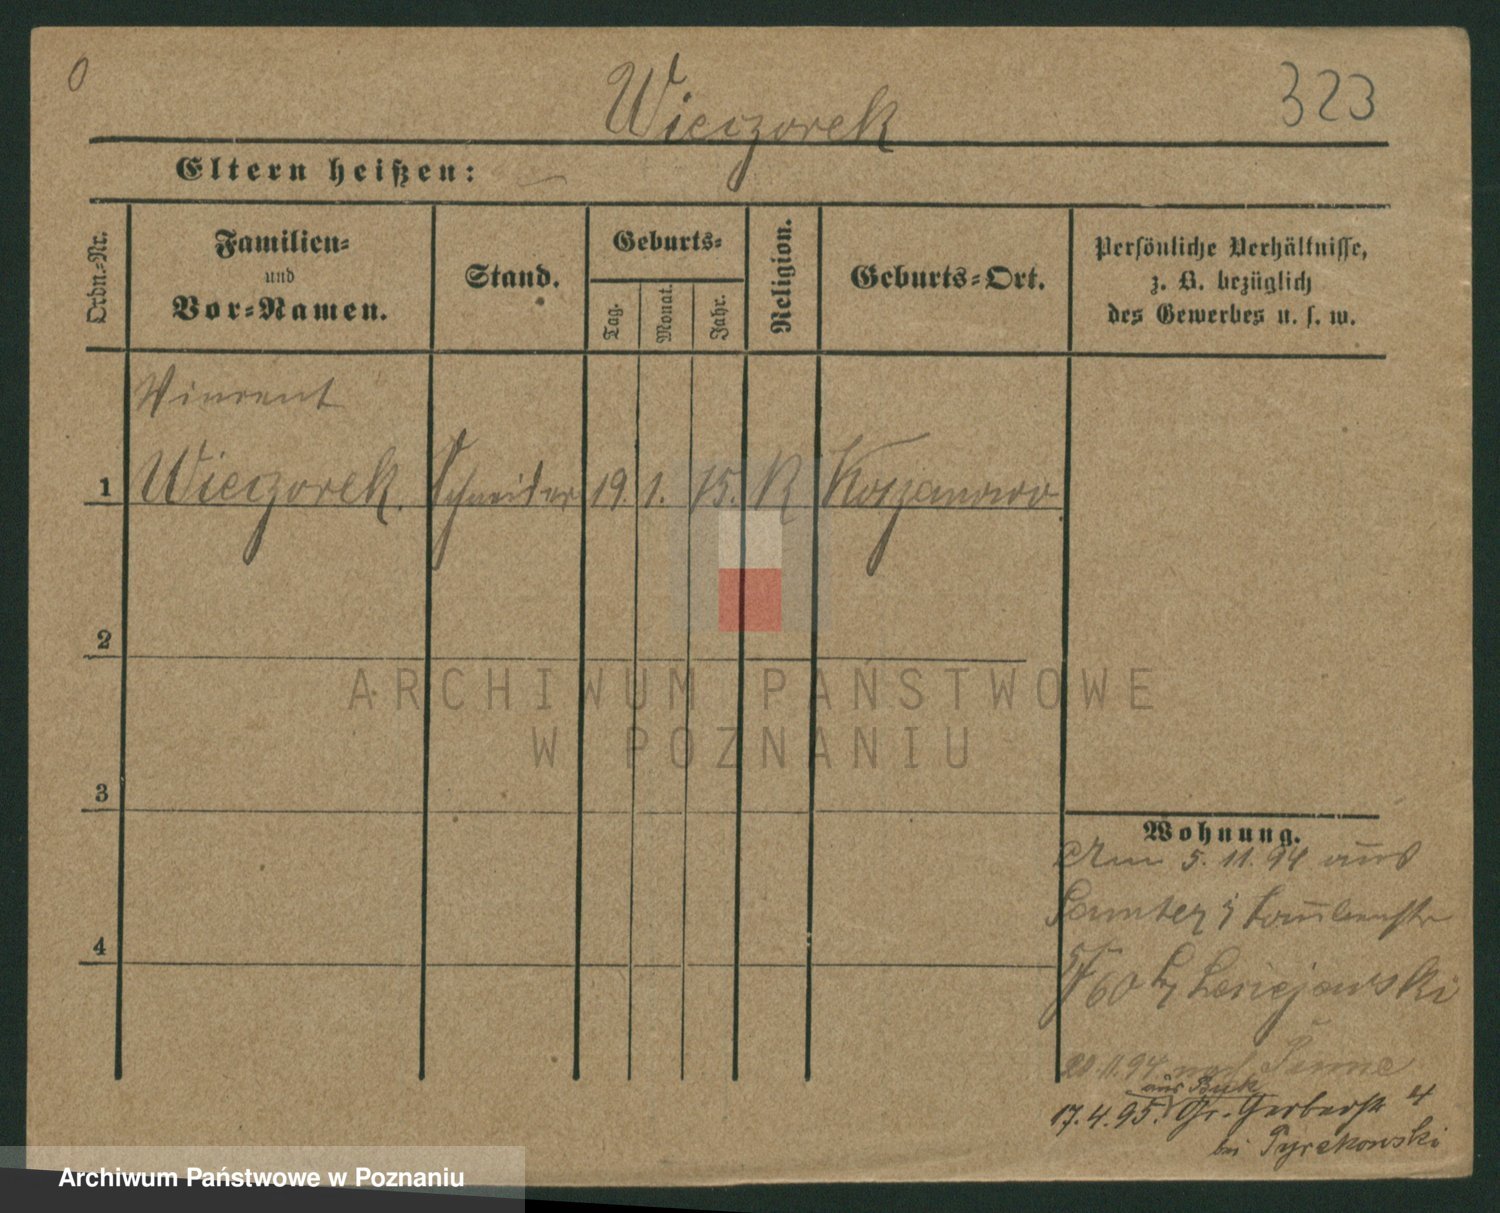 0
Wieczorek
323
Eltern heißen: —
Ordn.-Nr.
Familien-
und
Vor-Namen.
Stand.
Geburts-
Tag.
Monat.
Jahr.
Religion.
Geburts-Ort.
Persönliche Verhältnisse,
z. B. bezüglich
des Gewerbes u. s. w.
Vincent
1 Wieczorek. Schneider 19. 1. 75. K
2
3
4
ARCHIWUM PAŃSTWOWE
W POZNANIU
Wohnung.
Am 5. 11. 94 aus
Samter
20.11.94 nach Pinne
aus Buk
17.4.95. Gr. Gerberstr 4
bei Pyrekowski
Archiwum Państwowe w Poznaniu